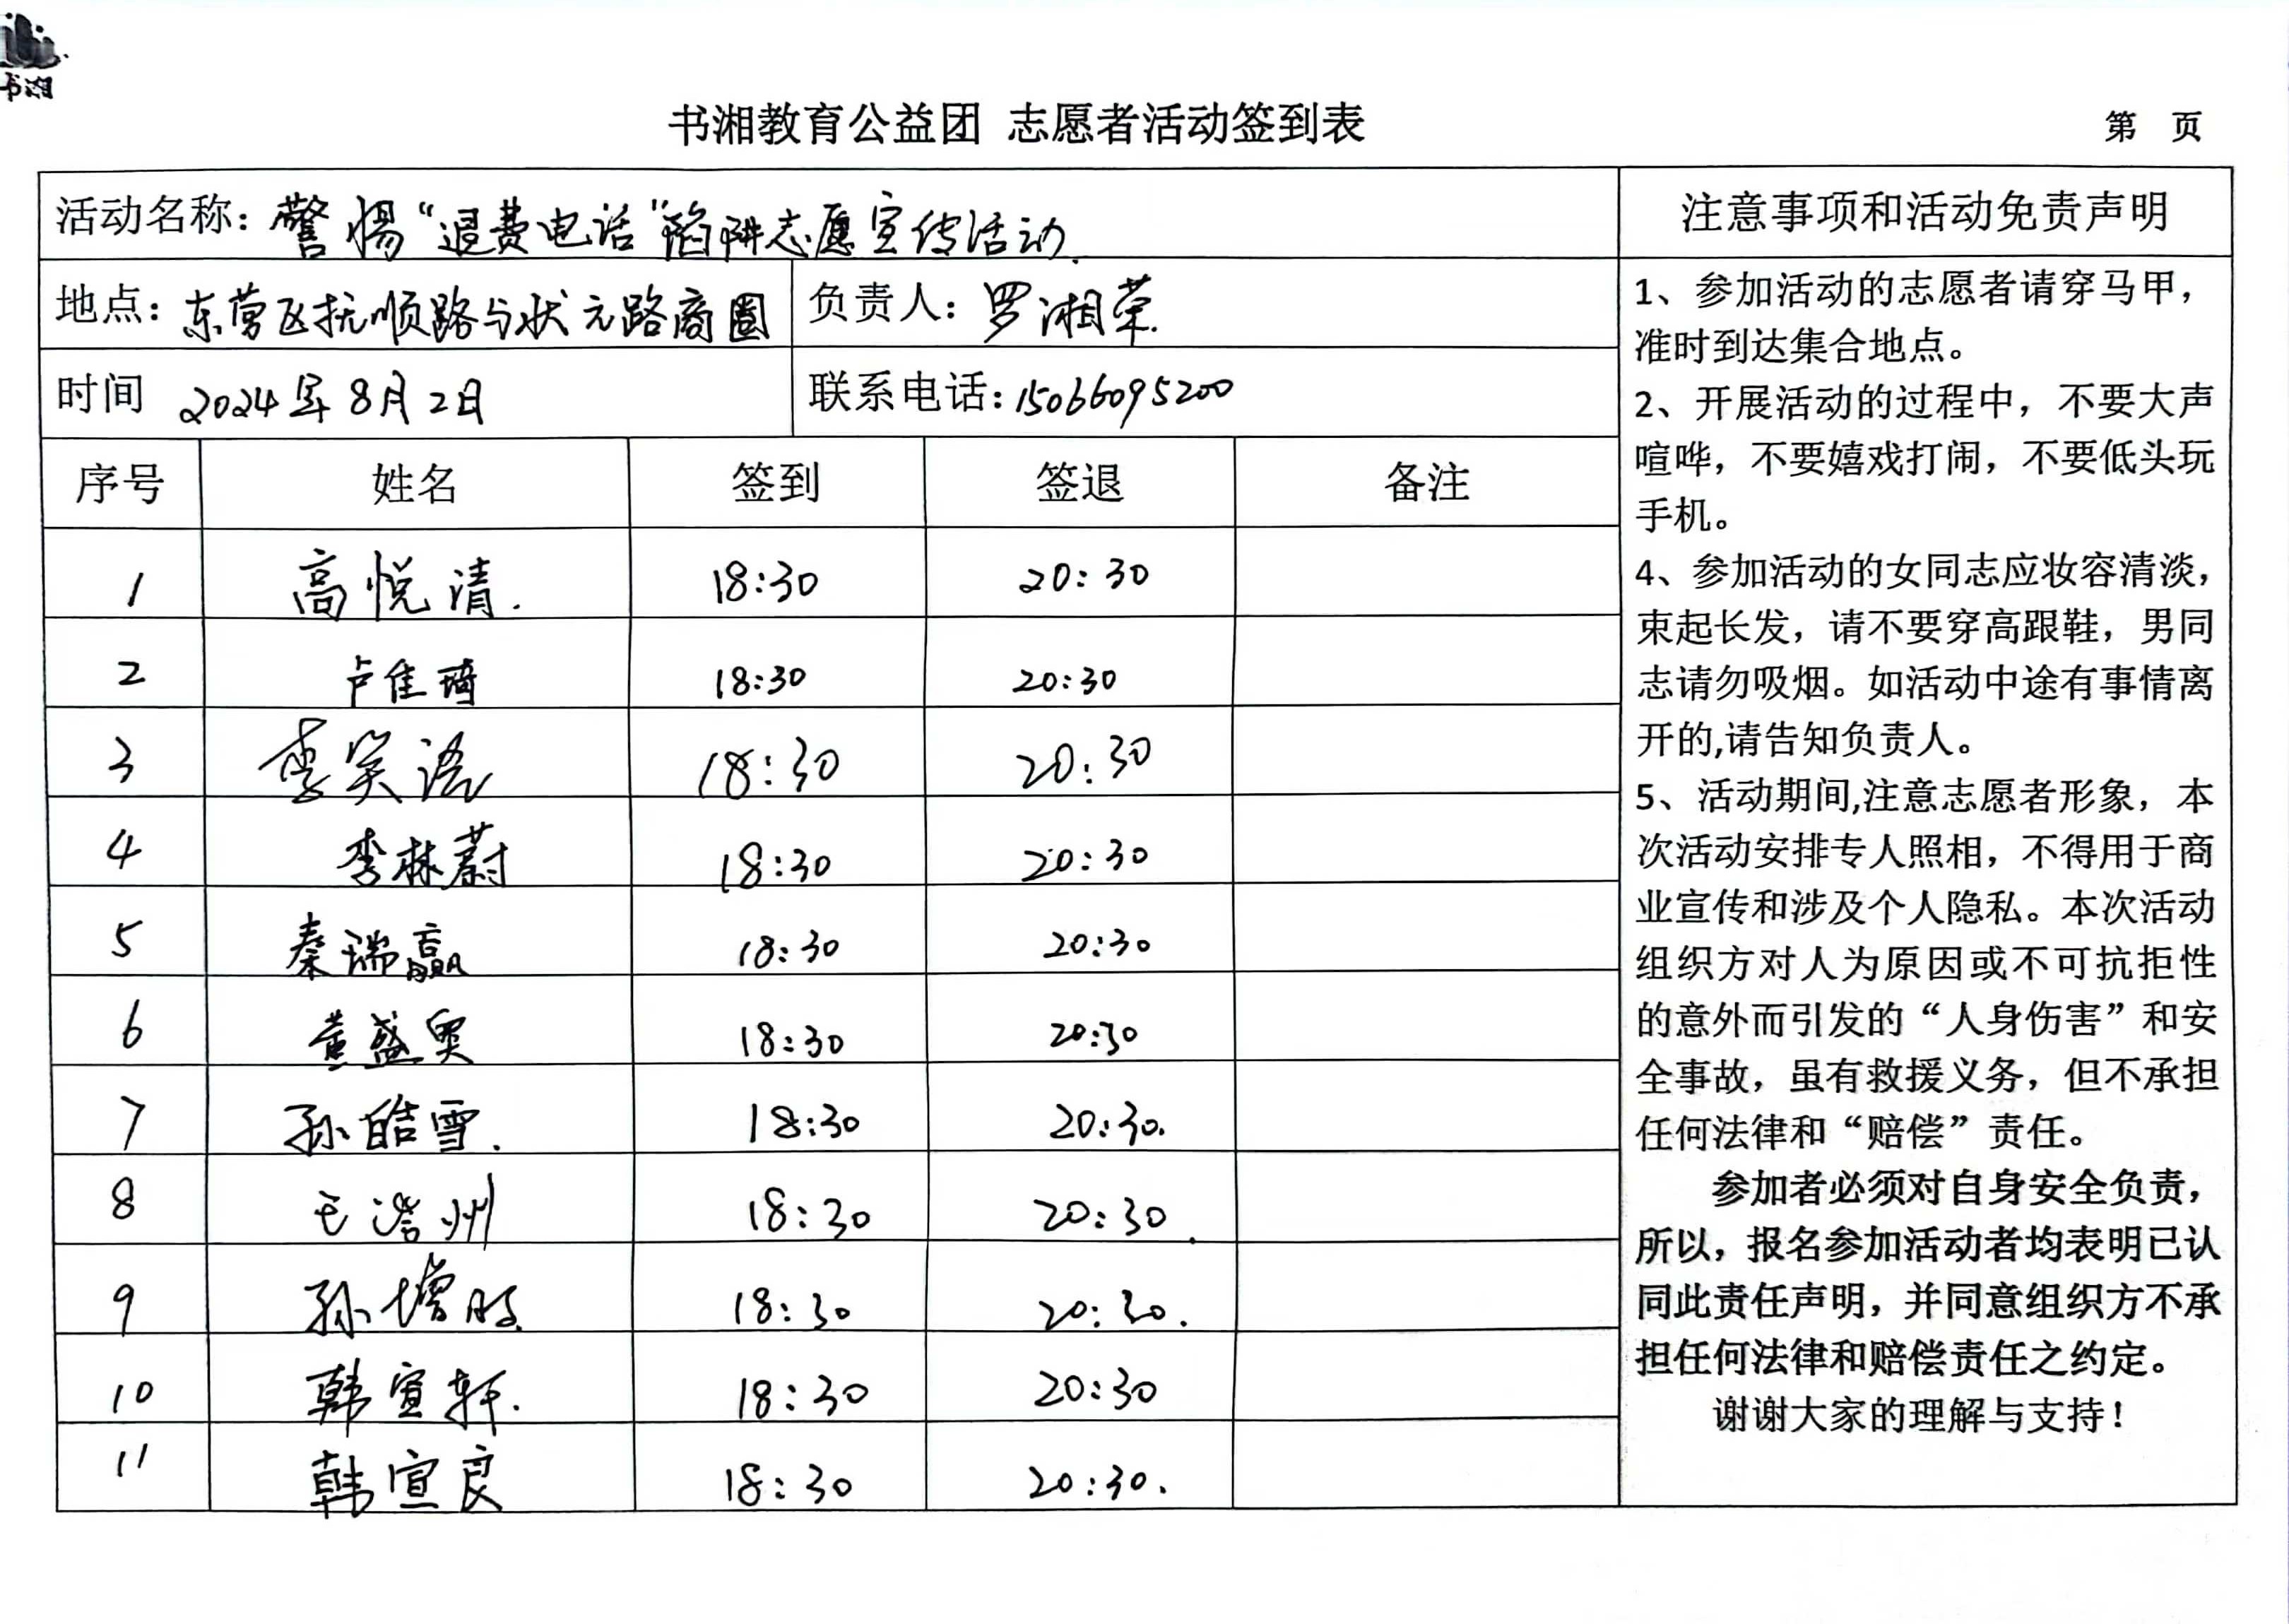 书湘
书湘教育公益团 志愿者活动签到表
第 页
活动名称：警惕“退费电话”陷阱志愿宣传活动.
地点：东营区抚顺路与状元路商圈 负责人：罗湘荣.
时间 2024年8月2日 联系电话：15066095200
序号 姓名 签到 签退 备注
1 高悦清. 18:30 20:30
2 卢佳琦 18:30 20:30
3 李笑语 18:30 20:30
4 李林蔚 18:30 20:30
5 秦瑞赢 18:30 20:30
6 黄盛奥 18:30 20:30
7 孙皓雪. 18:30 20:30.
8 王澔州 18:30 20:30.
9 孙增 18:30 20:30.
10 韩宣轩. 18:30 20:30
11 韩宣良 18:30 20:30.
注意事项和活动免责声明
1、参加活动的志愿者请穿马甲，
准时到达集合地点。
2、开展活动的过程中，不要大声
喧哗，不要嬉戏打闹，不要低头玩
手机。
4、参加活动的女同志应妆容清淡，
束起长发，请不要穿高跟鞋，男同
志请勿吸烟。如活动中途有事情离
开的,请告知负责人。
5、活动期间,注意志愿者形象，本
次活动安排专人照相，不得用于商
业宣传和涉及个人隐私。本次活动
组织方对人为原因或不可抗拒性
的意外而引发的“人身伤害”和安
全事故，虽有救援义务，但不承担
任何法律和“赔偿”责任。
参加者必须对自身安全负责，
所以，报名参加活动者均表明已认
同此责任声明，并同意组织方不承
担任何法律和赔偿责任之约定。
谢谢大家的理解与支持！